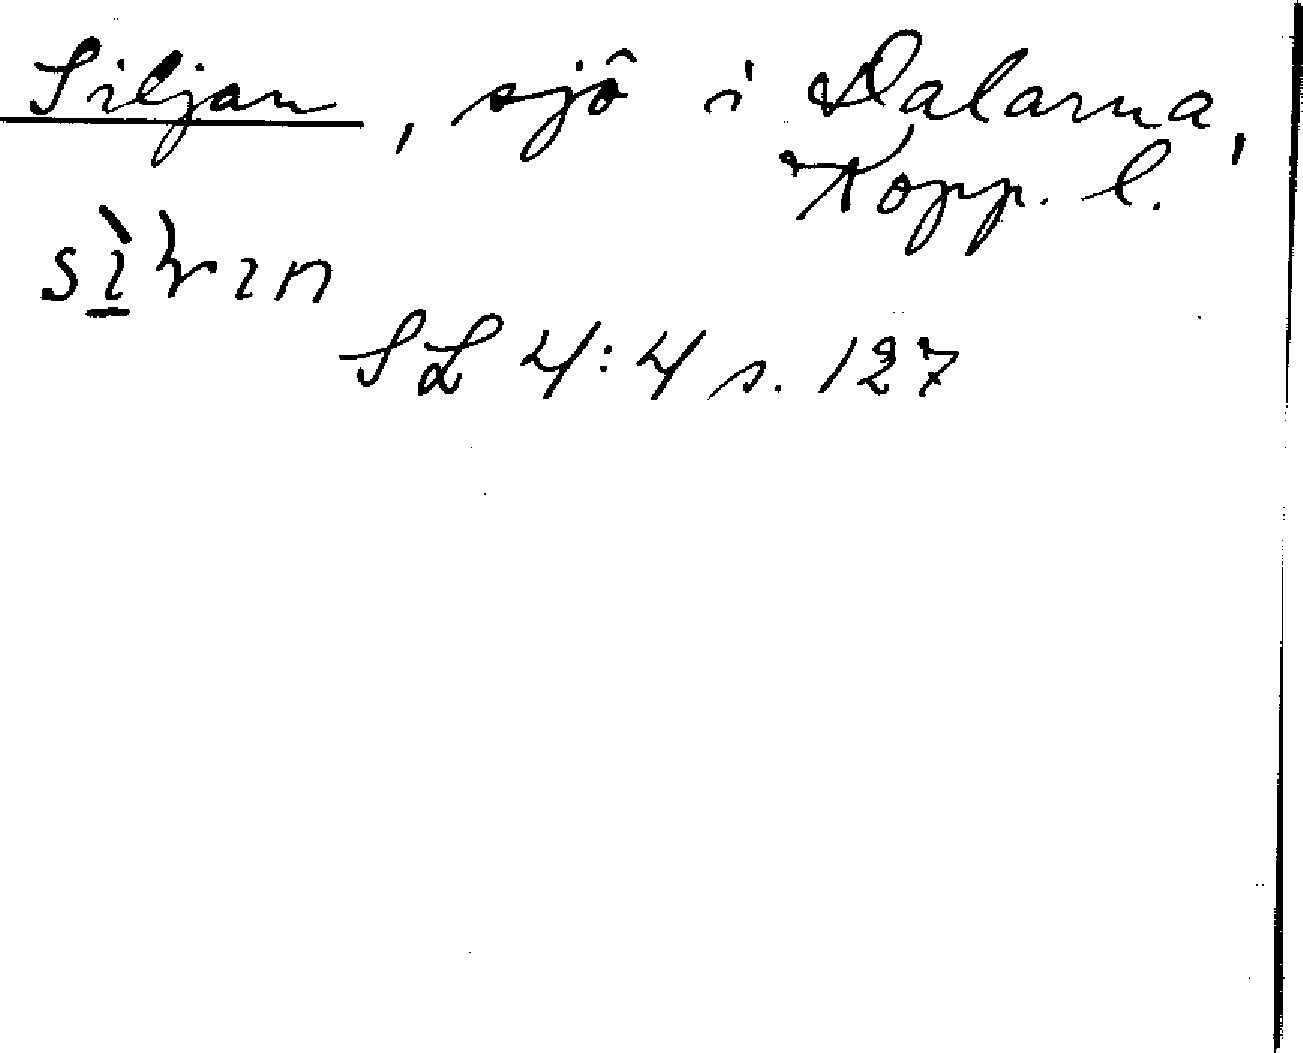 Siljan, sjö i Dalarna,
Kopp. l.
SL 4:4 s. 127